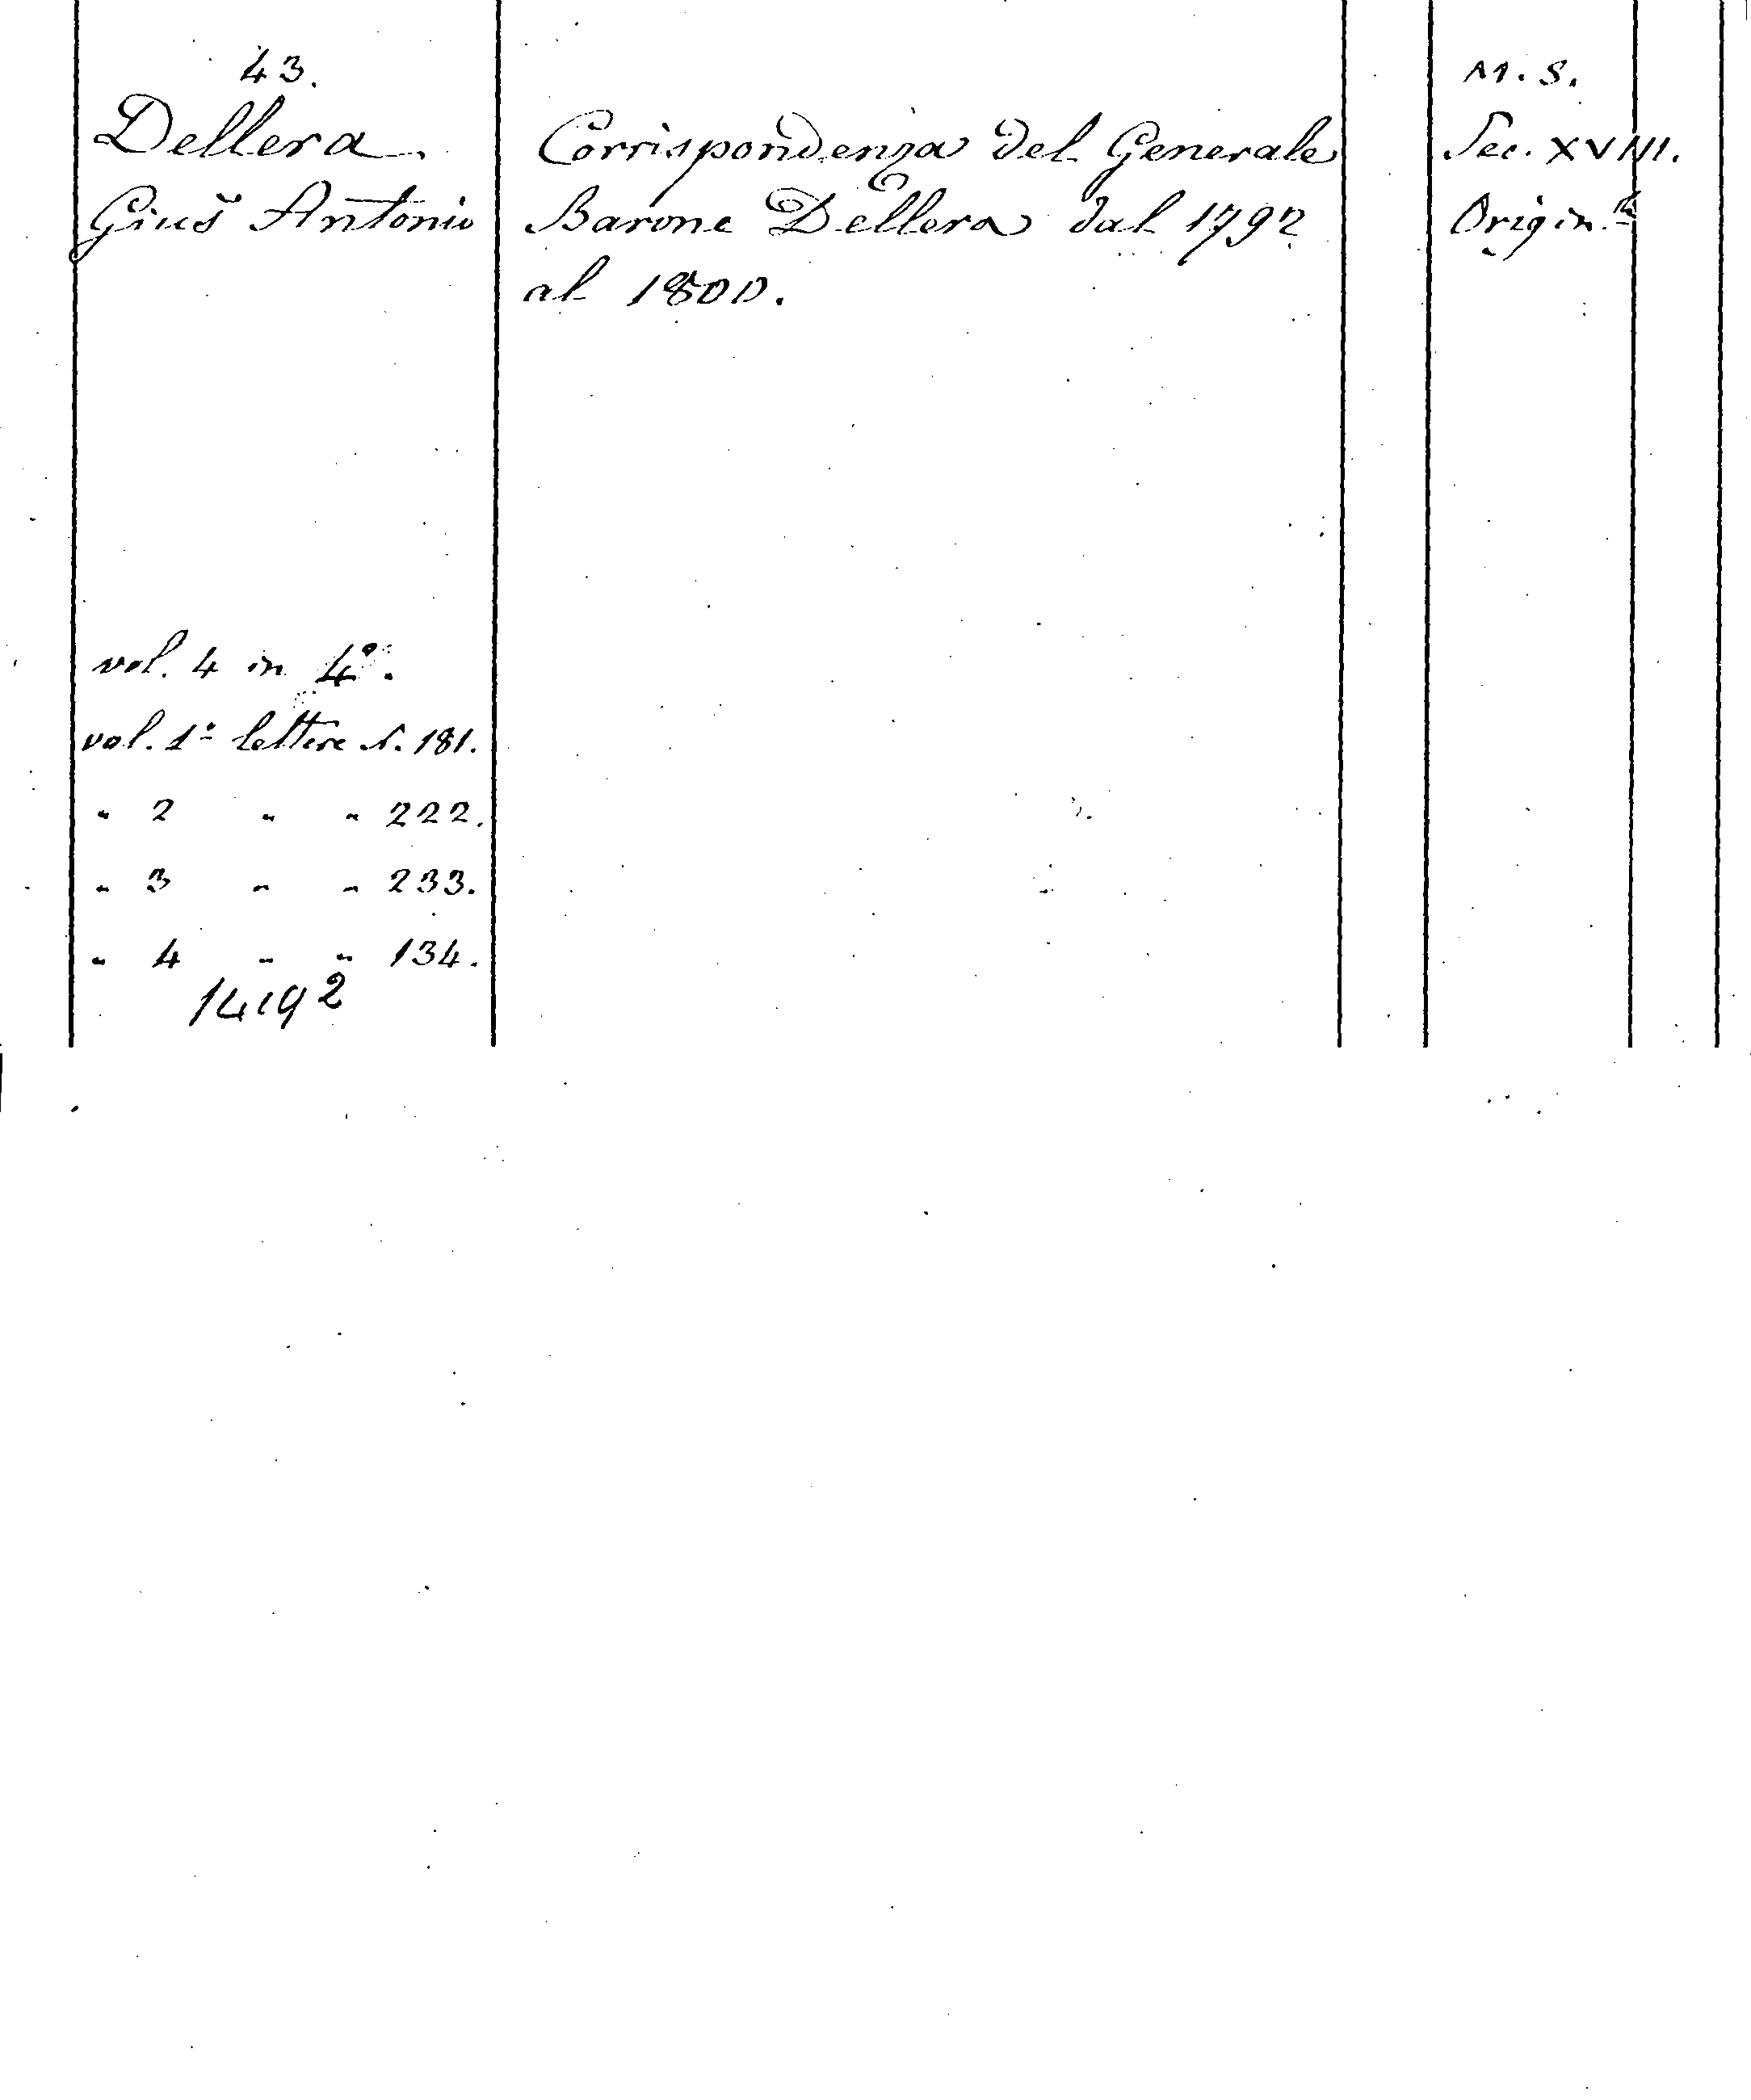 43.
Dellera
Giuš Antonio
vol. 4 in 4°.
vol. 1° lettere N. 181.
" 2 " " 222.
" 3 " " 233.
" 4 " " 134.
14192
Corrispondenza del Generale
Barone Dellera dal 1792
al 1800.
M. S.
Sec. XVIII.
Origin.le